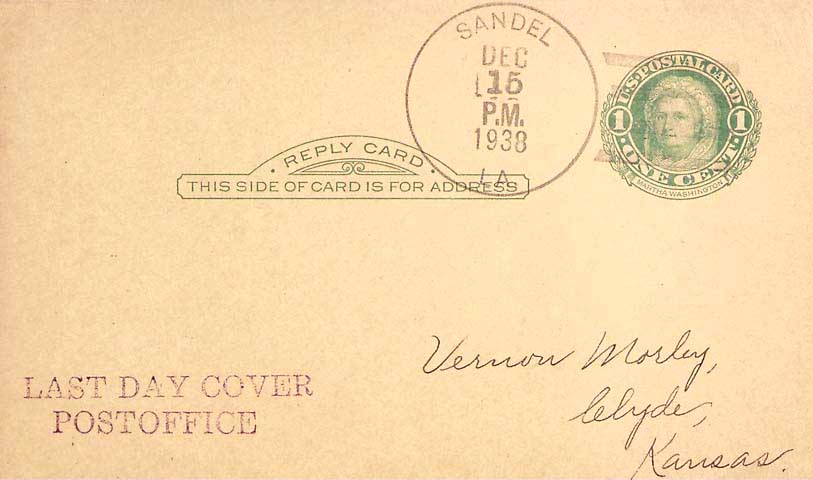 SANDEL
DEC
15
P.M.
1938
LA
U.S. POSTAL CARD
1 1
ONE CENT
MARTHA WASHINGTON
· REPLY CARD ·
THIS SIDE OF CARD IS FOR ADDRESS
Vernon Morley,
Clyde,
Kansas.
LAST DAY COVER
POSTOFFICE